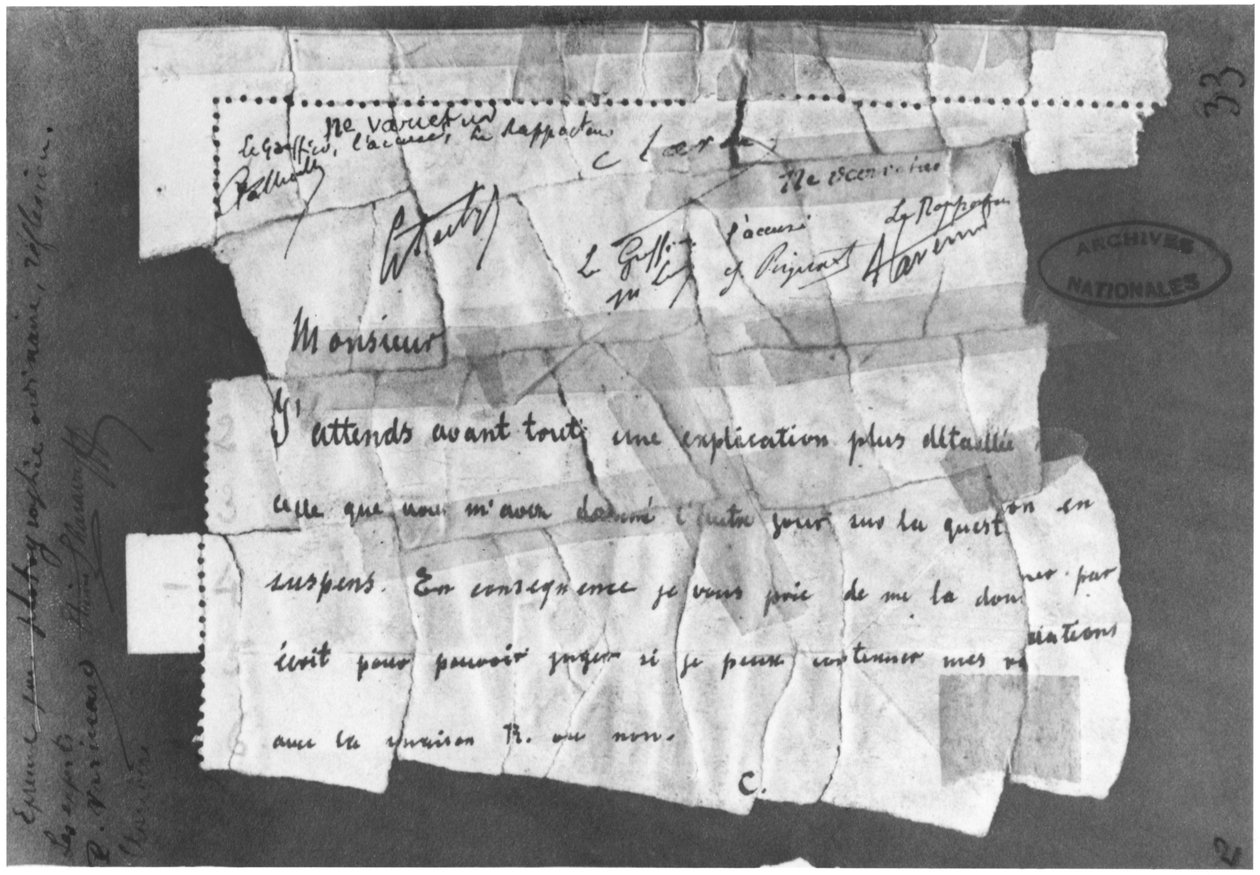 33
ne varietur
le Greffier, l'accusé, Le Rapporteur
ne varietur
Le Greffier l'accusé Le Rapporteur
ARCHIVES
NATIONALES
Monsieur
J'attends avant tout une explication plus détaillée
celle que vous m'avez donné l'autre jour sur la question en
suspens. En conséquence je vous prie de me la donner par
écrit pour pouvoir juger si je peux continuer mes relations
avec la maison R. ou non.
C.
Epreuve par photographie ordinaire, réflexion.
Les experts
P. Varinard
2